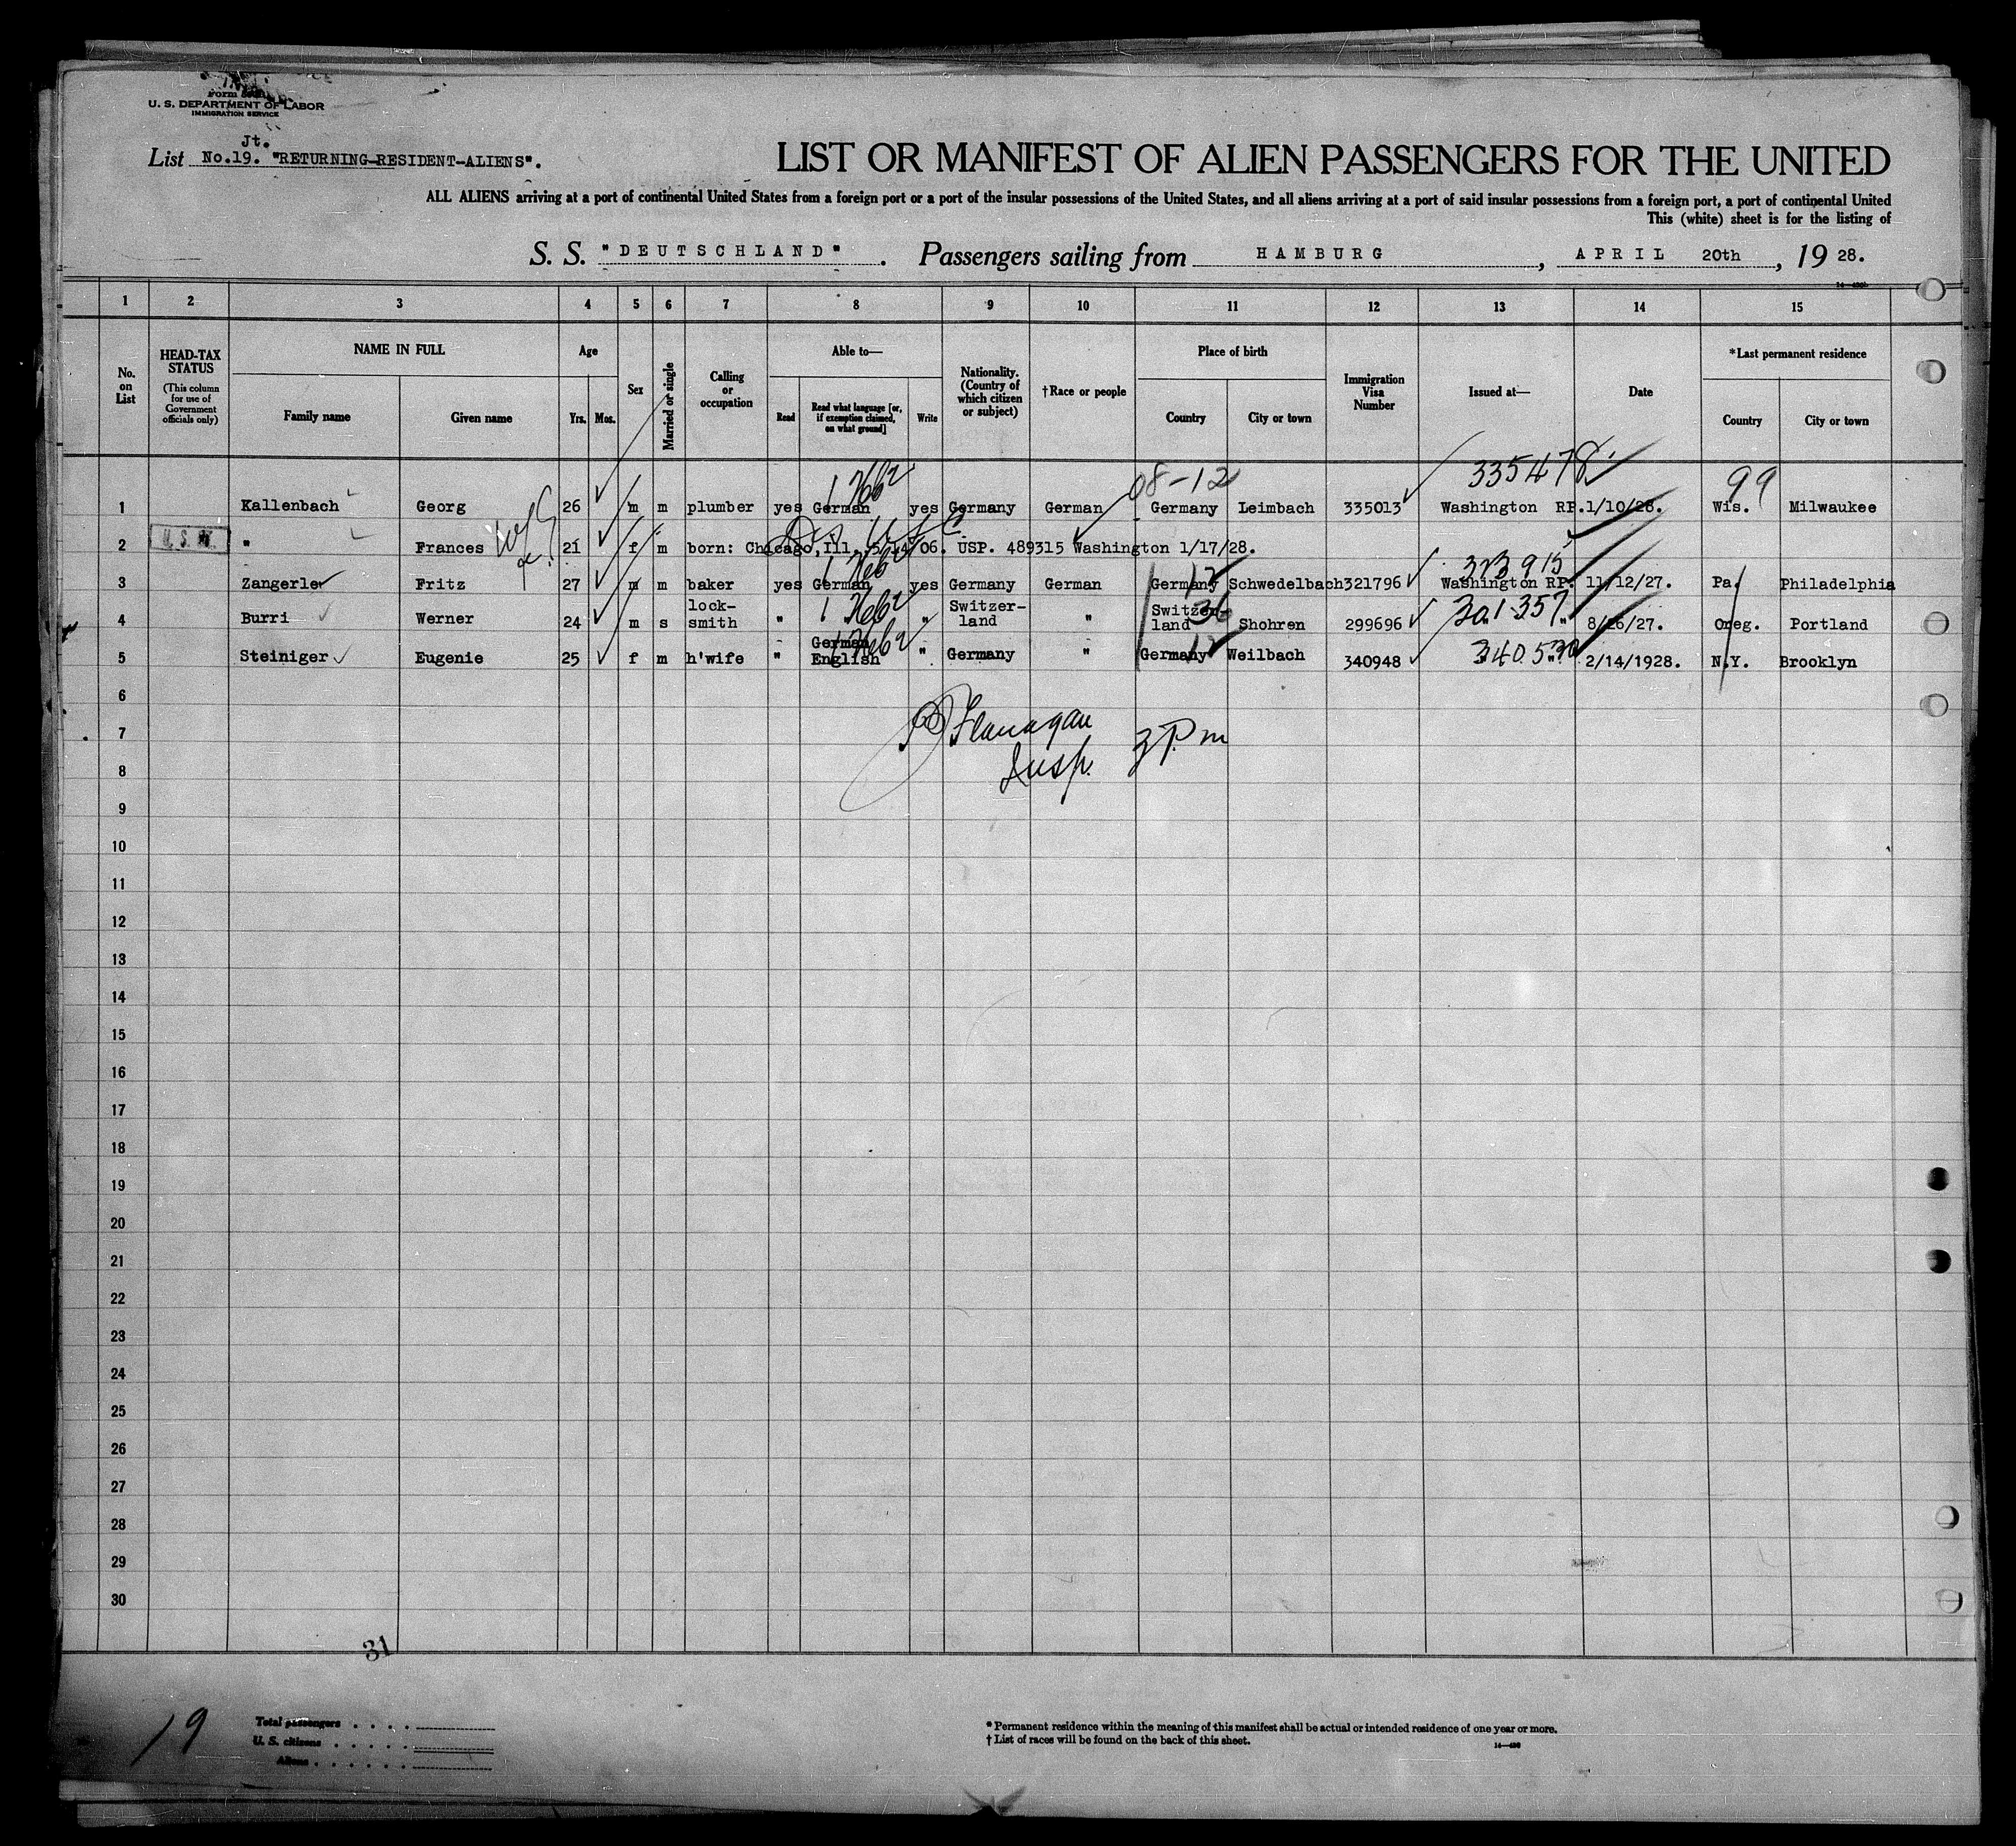 Form
U. S. DEPARTMENT OF LABOR
IMMIGRATION SERVICE
Jt.
List No.19. "RETURNING-RESIDENT-ALIENS".
LIST OR MANIFEST OF ALIEN PASSENGERS FOR THE UNITED
ALL ALIENS arriving at a port of continental United States from a foreign port or a port of the insular possessions of the United States, and all aliens arriving at a port of said insular possessions from a foreign port, a port of continental United
This (white) sheet is for the listing of
S. S. "DEUTSCHLAND". Passengers sailing from HAMBURG, APRIL 20th, 1928.
1 2 3 4 5 6 7 8 9 10 11 12 13 14 15
No. on List
HEAD-TAX STATUS (This column for use of Government officials only)
NAME IN FULL
Family name Given name
Age
Yrs. Mos.
Sex
Married or single
Calling or occupation
Able to—
Read Read what language [or, if exemption claimed, on what ground] Write
Nationality. (Country of which citizen or subject)
†Race or people
Place of birth
Country City or town
Immigration Visa Number
Issued at—
Date
*Last permanent residence
Country City or town
08-12 335478 99
1 Kallenbach Georg 26 m m plumber yes German yes Germany German Germany Leimbach 335013 Washington RP. 1/10/28. Wis. Milwaukee
2 " Frances 21 f m born: Chicago, Ill. 06. USP. 489315 Washington 1/17/28.
12 323915
3 Zangerle Fritz 27 m m baker yes German yes Germany German Germany Schwedelbach 321796 Washington RP. 11/12/27. Pa. Philadelphia
36 301357
4 Burri Werner 24 m s lock-smith " " Switzer-land " Switzer-land Shohren 299696 " " 8/26/27. Oreg. Portland
12
5 Steiniger Eugenie 25 f m h'wife " German English " Germany " Germany Weilbach 340948 " " 2/14/1928. N.Y. Brooklyn
6
Flanagan
7
Insp. 3 P.m
8
9
10
11
12
13
14
15
16
17
18
19
20
21
22
23
24
25
26
27
28
29
30
31
19
Total passengers
U. S. citizens
Aliens
*Permanent residence within the meaning of this manifest shall be actual or intended residence of one year or more.
†List of races will be found on the back of this sheet.